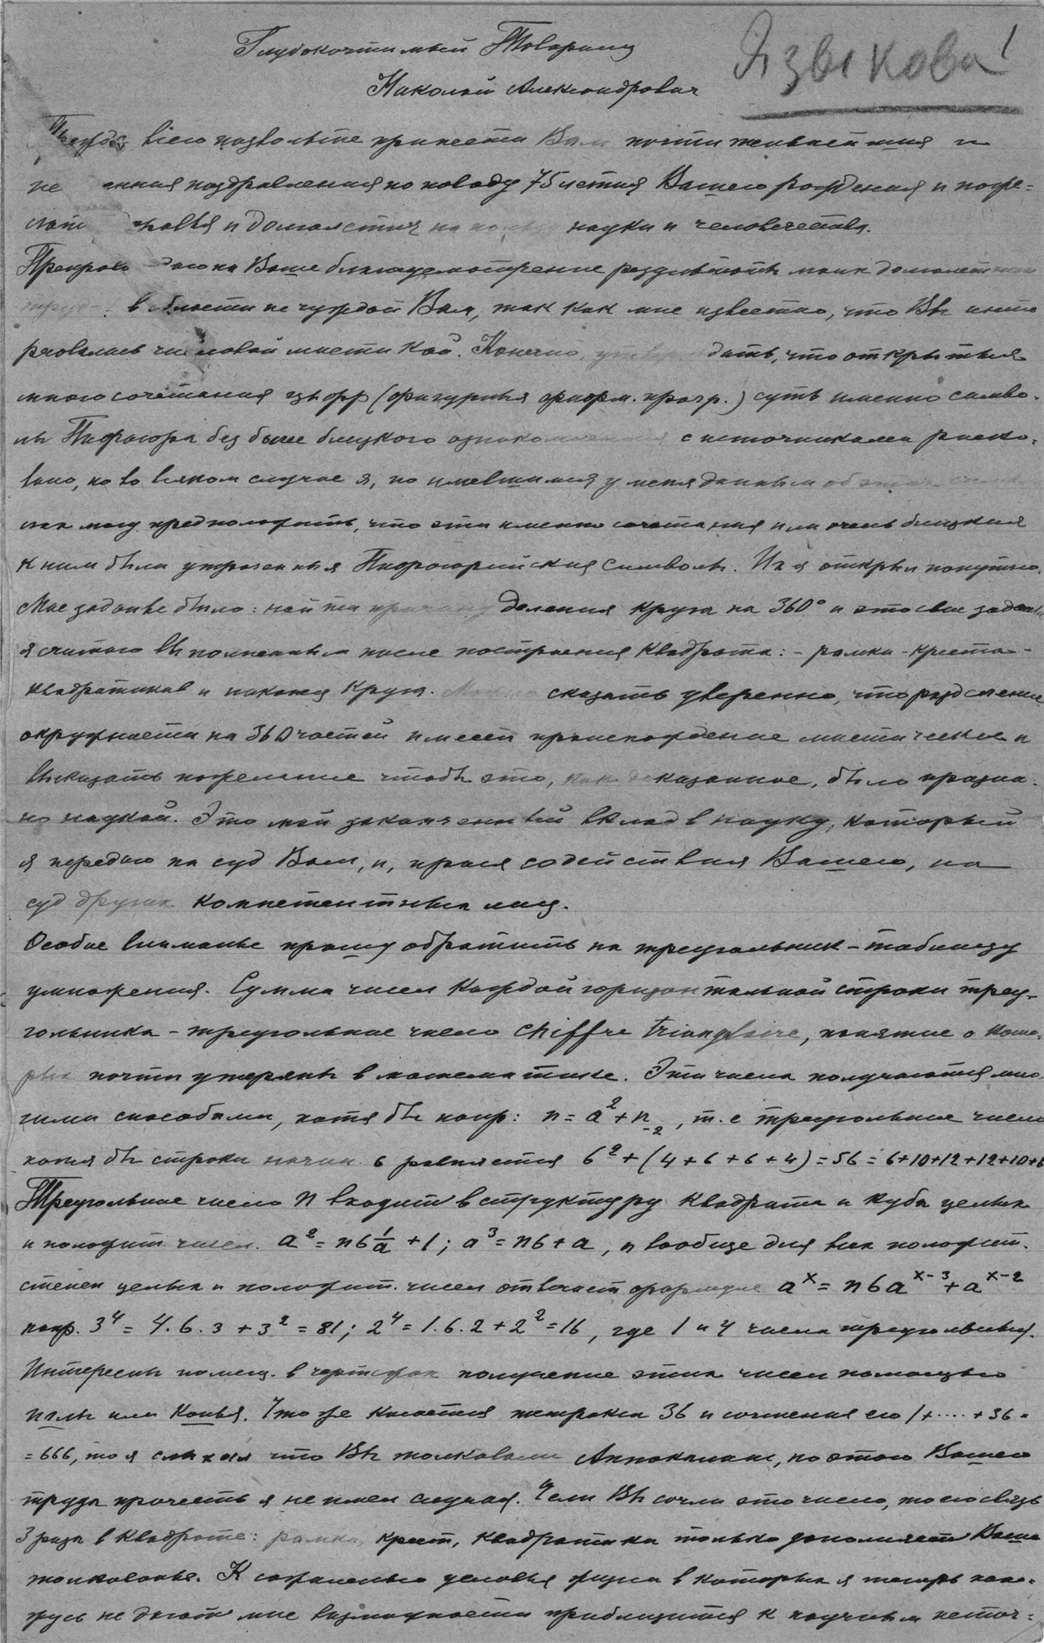 Глубокочтимый Товарищ
Языкова 1
Николай Александрович
Прежде всего позвольте принести Вам почти живейшия и
поздравления по поводу 75 летия Вашего рождения и поже=
и долголетия на пользу науки и человечества.
на Ваше благоусмотрение результаты моих долголетних
в области не чуждой Вам, так как мне известно, что Вы инте
числовой мистикой. Конечно, утверждать, что открытыя
мною сочетания цыфр (фигурныя арифм. прогр.) суть именно симво-
лы Пифагора без более близкого ознакомления с источниками риско-
вано, но во всяком случае я, по имевшимся у меня данным об этих
могу предположить, что эти именно сочетания или очень близкия
к ним были утраченныя Пифагорийския символы. Их я открыл попутно.
Мое заданье было: найти причину деления круга на 360° и это свое заданье
я считаю выполненным после построения квадрата: - рамки - креста -
квадратиков и наконец круга. Можно сказать уверенно, что разделение
окружности на 360 частей имеет происхождение мистическое и
высказать пожелание чтобы это, как доказанное, было призна-
но наукой. Это мой законченный вклад в науку, который
я передаю на суд Вам, и, прося содействия Вашего, на
суд других компетентных лиц.
Особое вниманье прошу обратить на треугольник - таблицу
умножения. Сумма чисел каждой горизонтальной строки треу-
гольника - треугольное число chiffre triangulaire, понятие о кото-
рых почти утеряны в математике. Эти числа получаются мно-
гими способами, хотя бы напр: n = a² + n₋₂, т.е треугольное число
хотя бы строки начин. 6 равняется 6² + (4+6+6+4) = 56 = 6+10+12+12+10+6
Треугольное число n входит в структуру квадрата и куба целых
и положит. чисел. a² = n6 1/a + 1; a³ = n6 + a, и вообще для всех положит.
степен целых и положит. чисел отвечает формуле aˣ = n6aˣ⁻³ + aˣ⁻²
напр. 3⁴ = 4.6.3 + 3² = 81; 2⁴ = 1.6.2 + 2² = 16, где 1 и 4 числа треугольныя.
Интересны помещ. в чертежах получение этих чисел помощью
или конья. Что же касается тетракса 36 и сочтения его 1+....+36=
=666, то я слыхал что Вы толковали Апокалипс, но этого Вашего
труда прочесть я не имел случая. Если Вы сочли это число, то его связь
3 раза в квадрате: рамка, крест, квадратики только дополняет Ваше
толкованье. К сожаленью условья жизни в которых я теперь нахо-
жусь не дают мне возможности приблизится к научным источ=